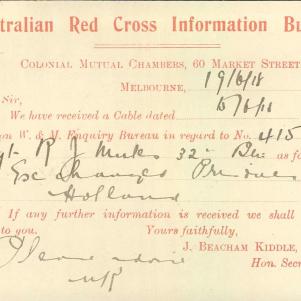 stralian Red Cross Information Bu
COLONIAL MUTUAL CHAMBERS, 60 MARKET STREET
MELBOURNE, 19/6/18
Sir,
We have received a Cable dated 15/6/18
on W. & M. Enquiry Bureau in regard to No. 415
R J 32 Bn as fo
Exchanged
Holland
If any further information is received we shall
to you. Yours faithfully,
J. BEACHAM KIDDLE,
Hon. Secr
Please